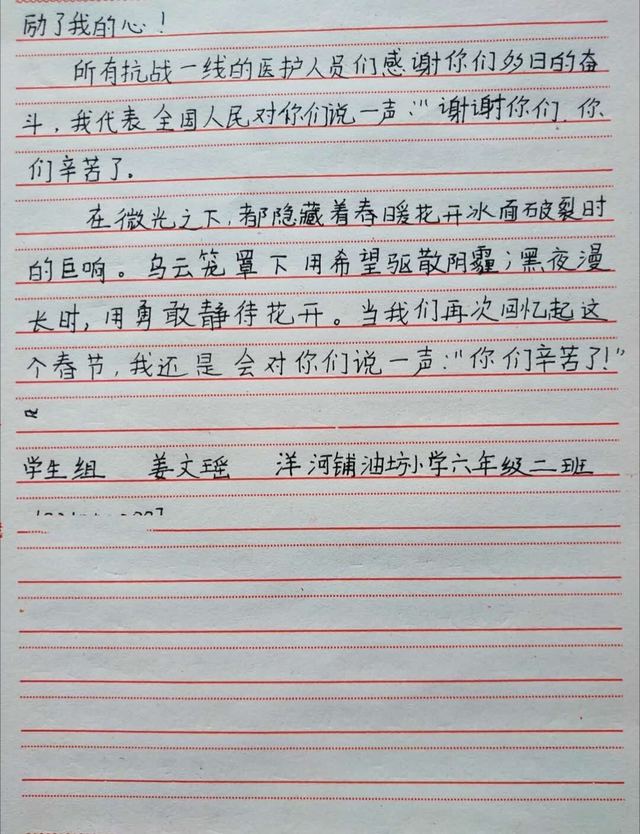 励了我的心！
所有抗战一线的医护人员们感谢你们多日的奋
斗，我代表全国人民对你们说一声：“谢谢你们，你
们辛苦了。
在微光之下，都隐藏着春暖花开冰面破裂时
的巨响。乌云笼罩下用希望驱散阴霾；黑夜漫
长时，用勇敢静待花开。当我们再次回忆起这
个春节，我还是会对你们说一声：“你们辛苦了！”
学生组 姜文瑶 洋河铺油坊小学六年级二班